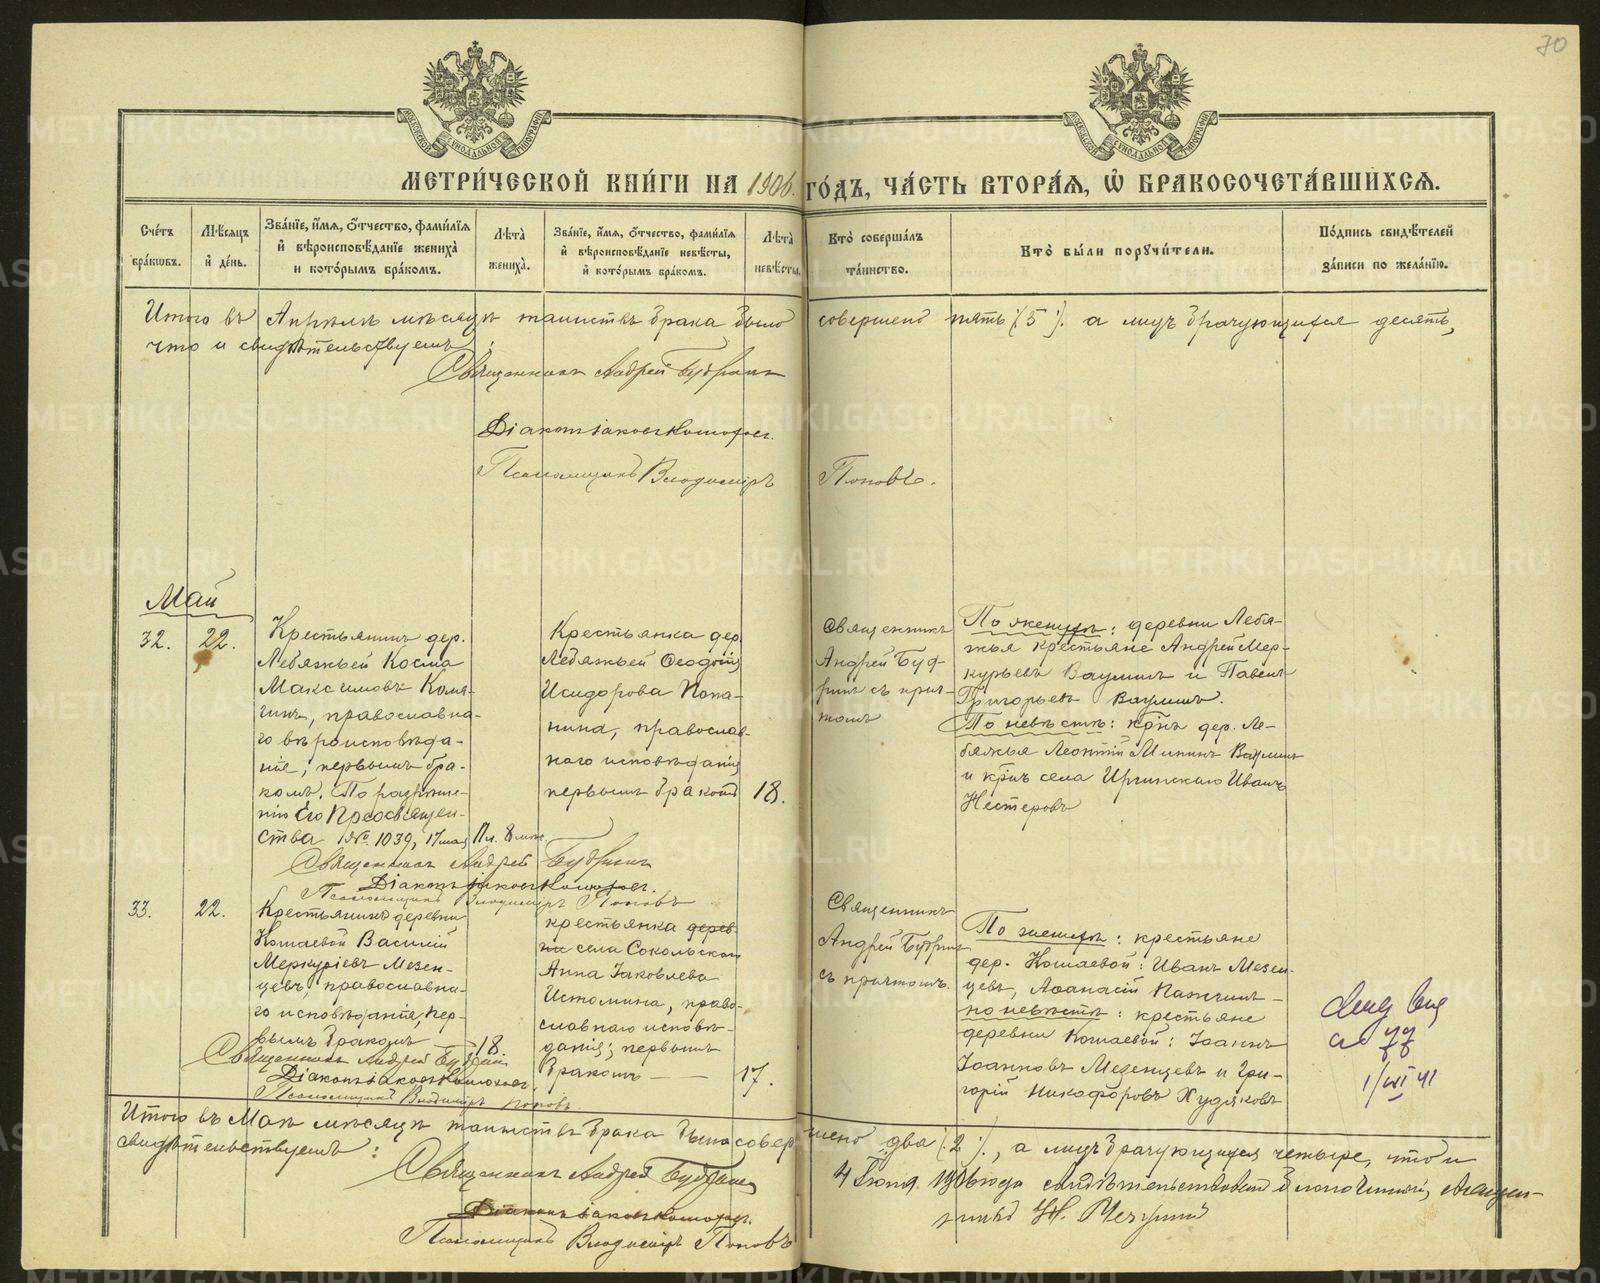 70
МЕТРИ́ЧЕСКОЙ КНИ́ГИ НА 1906 ГО́ДЪ, ЧА́СТЬ ВТОРА́Я, Ѡ БРАКОСОЧЕТА́ВШИХСЯ.
Сче́тъ бра́кѡвъ.
Мѣ́сяцъ и҆ де́нь.
Зва́нїе, и҆́мѧ, ѻ҆́тчество, фами́лїѧ и҆ вѣроисповѣ́данїе жениха̀ и кото́рымъ бра́комъ.
Лѣ́та жениха̀.
Зва́нїе, и҆́мѧ, ѻ҆́тчество, фами́лїѧ и҆ вѣроисповѣ́данїе невѣ́сты, и҆ кото́рымъ бра́комъ.
Лѣ́та невѣ́сты.
Кто̀ соверша́лъ та́инство.
Кто̀ бы́ли порꙋчи́тели.
По́дпись свидѣ́телей за́писи по жела́нїю.
Итого въ Апрѣлѣ мѣсяцѣ таинствъ брака было совершено пять (5). а лицъ брачующихся десять,
что и свидѣтельствуемъ:
Священникъ Андрей Будринъ
Діаконъ Іаковъ
Псаломщикъ Владиміръ Поповъ.
Май
32.
22.
Крестьянинъ дер.
Лебяжьей Косма
Максимовъ Каля-
гинъ, православна-
го вѣроисповѣда-
нія, первымъ бра-
комъ. По разрѣше-
нію Его Преосвящен-
ства № 1039, 17 мая
17 л. 8 мѣс
Крестьянка дер.
Лебяжьей Ѳеодосія
Исидорова Попа-
нина, православ-
наго исповѣданія,
первымъ бракомъ
18.
Священникъ
Андрей Буд-
ринъ съ прич-
томъ
По женихѣ: деревни Лебя-
жья крестьяне Андрей Мер-
курьевъ Ваулинъ и Павелъ
Григорьевъ Ваулинъ.
По невѣстѣ: кр-нъ дер. Ле-
бяжья Леонтій Мининъ Ваулинъ
и кр-нъ села Иргинскаго Иванъ
Нестеровъ
Священникъ Андрей Будринъ
Діаконъ Іаковъ
Псаломщикъ Владиміръ Поповъ
33.
22.
Крестьянинъ деревни
Кошаевой Василій
Меркуріевъ Мезен-
цевъ, православна-
го исповѣданія, пер-
вымъ бракомъ
18
крестьянка дерев-
ни села Сокольскаго
Анна Іаковлева
Истомина, право-
славнаго исповѣ-
данія; первымъ
бракомъ —
17.
Священникъ
Андрей Будринъ
съ причтомъ.
По женихѣ: крестьяне
дер. Кошаевой: Иванъ Мезен-
цевъ, Аѳанасій
по невѣстѣ: крестьяне
деревни Кошаевой: Іоаннъ
Іоанновъ Мезенцевъ и Гри-
горій Никифоровъ Худяковъ
1/VI 41
Священникъ Андрей Будринъ
Діаконъ Іаковъ
Псаломщикъ Владиміръ Поповъ
Итого въ Маѣ мѣсяцѣ таинствъ брака было совершено два (2), а лицъ брачующихся четыре, что и
свидѣтельствуемъ:
Священникъ Андрей Будринъ
Діаконъ Іаковъ
Псаломщикъ Владиміръ Поповъ
4 Іюня. 1906 года свидѣтельствовалъ Благочинный, священ-
никъ
METRIKI.GASO-URAL.RU